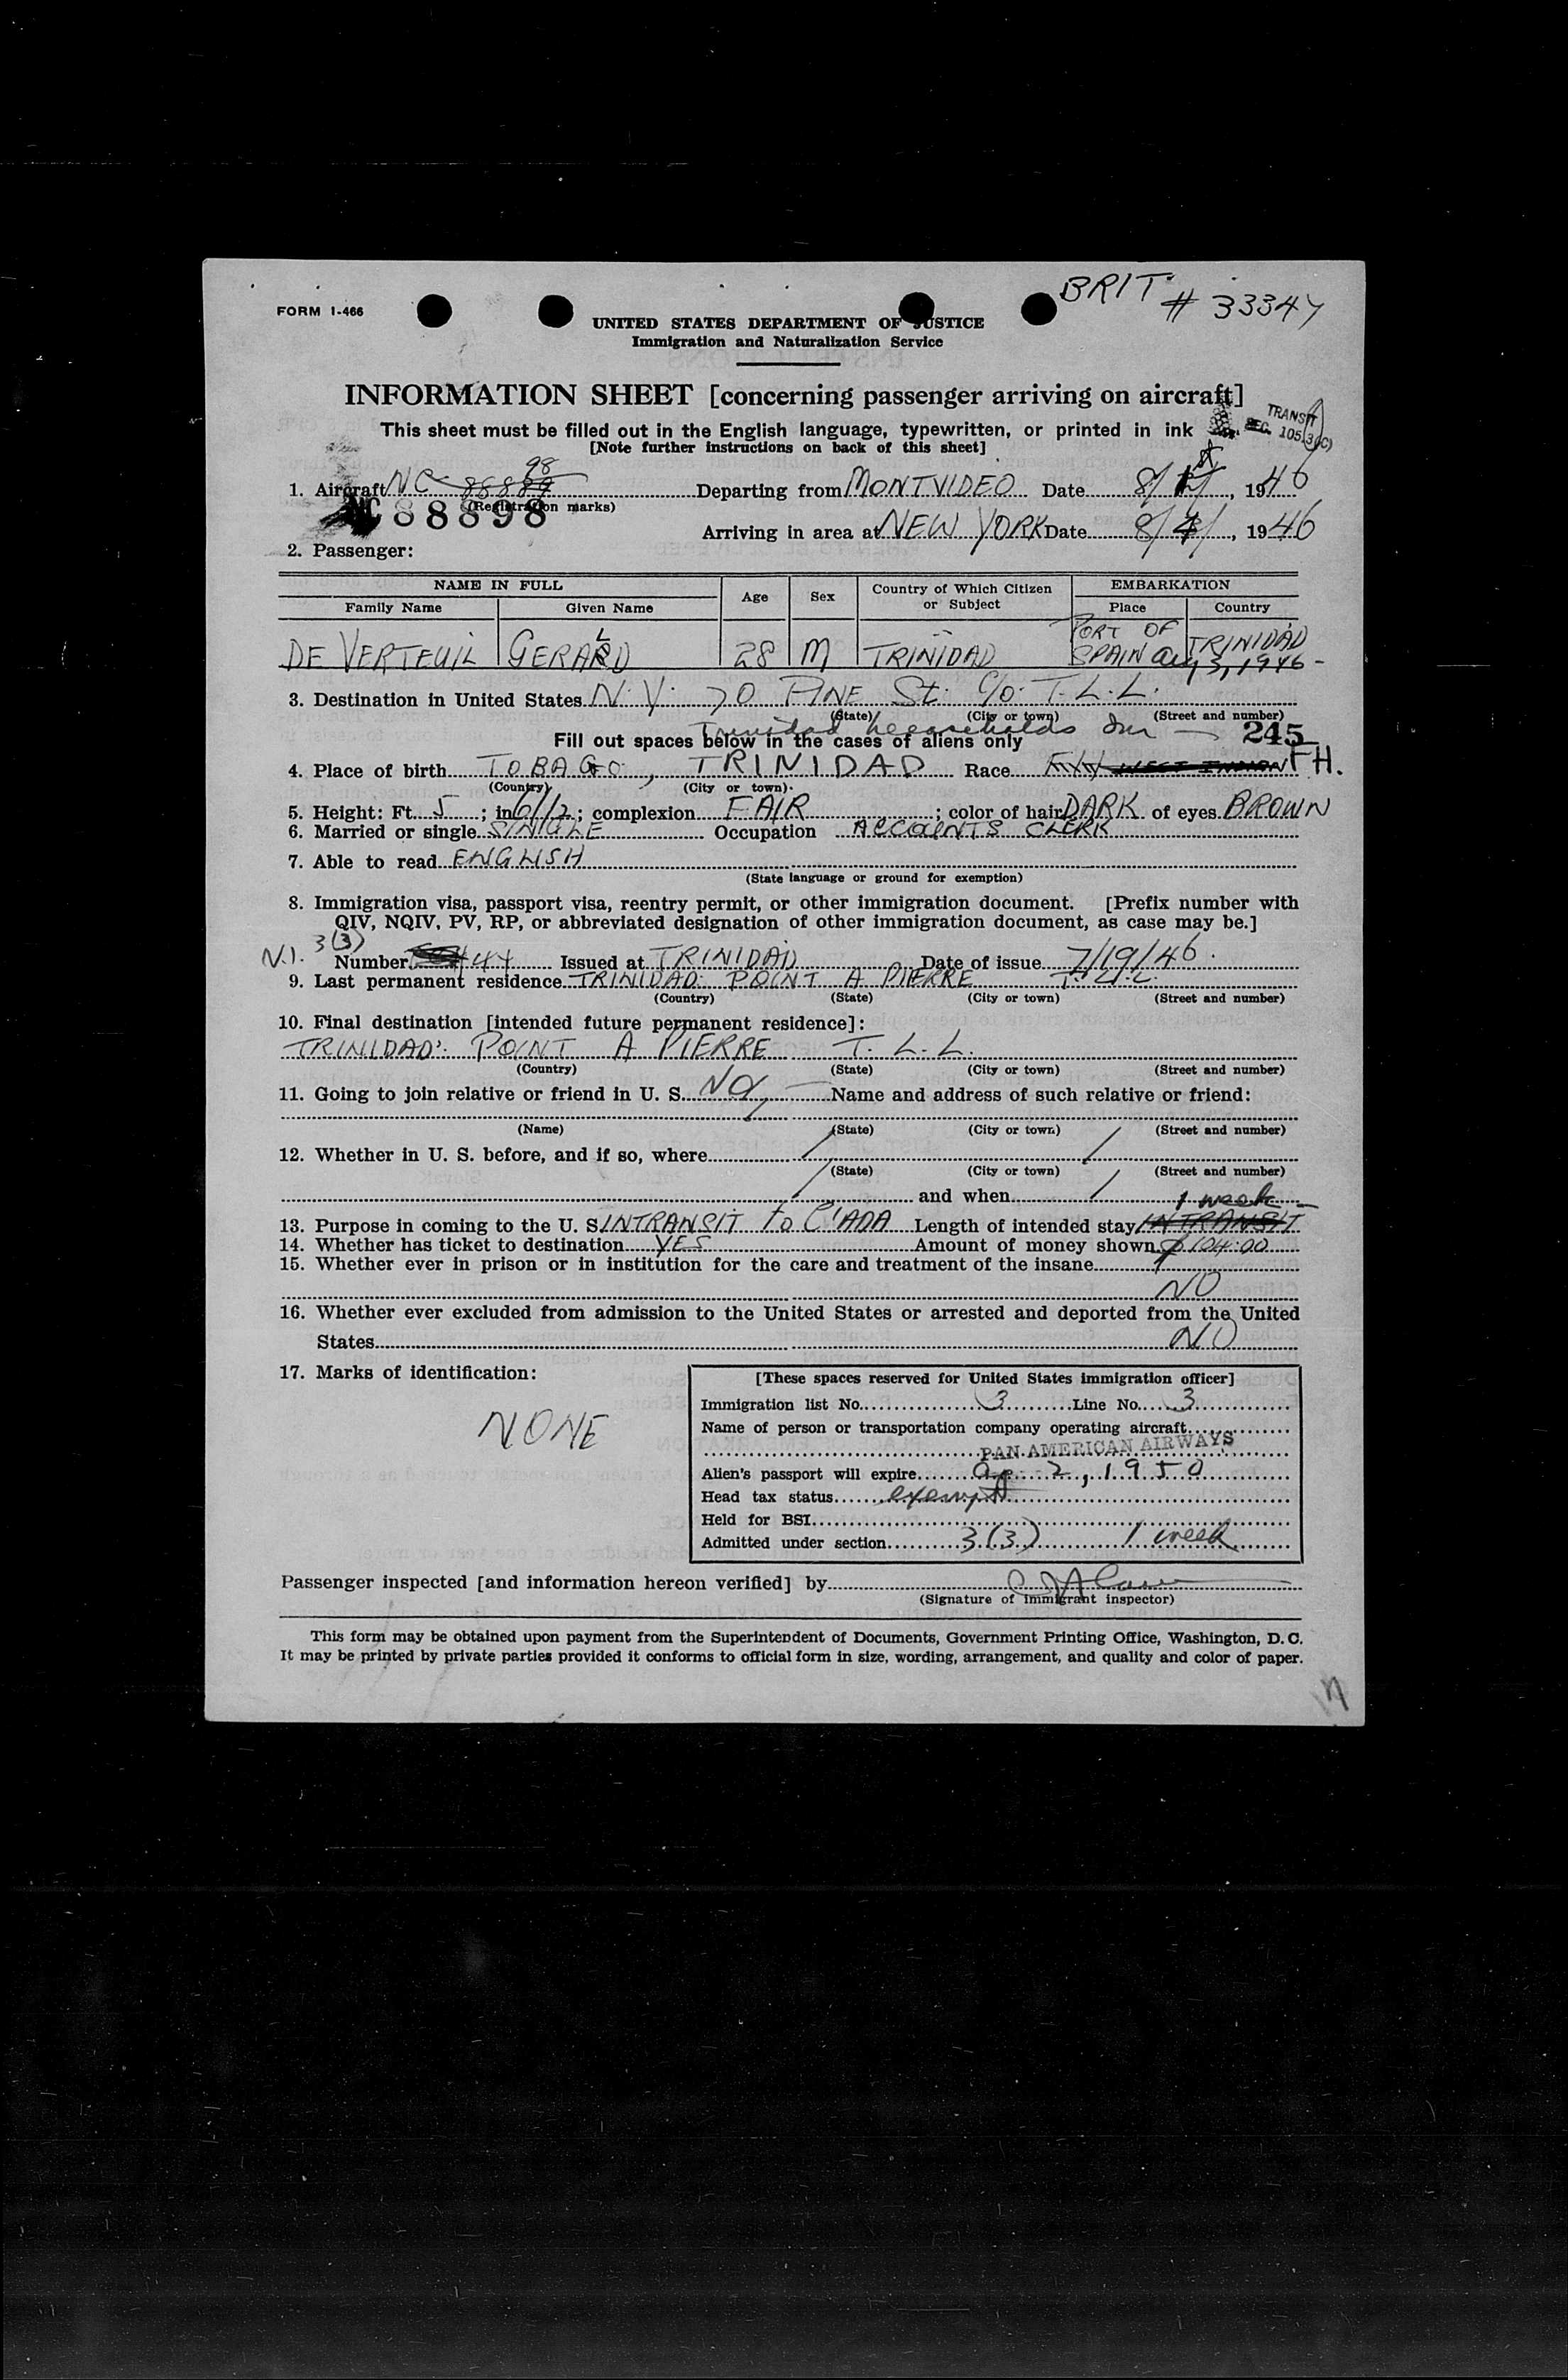 BRIT. # 33347
FORM I-466
UNITED STATES DEPARTMENT OF JUSTICE
Immigration and Naturalization Service
INFORMATION SHEET [concerning passenger arriving on aircraft]
TRANSIT
SEC. 105.3(C)
This sheet must be filled out in the English language, typewritten, or printed in ink
[Note further instructions on back of this sheet]
98
1. Aircraft NC 88889 Departing from MONTVIDEO Date 8/ /, 1946
(Registration marks)
NC 88898
Arriving in area at NEW YORK Date 8/4/, 1946
2. Passenger:
NAME IN FULL Age Sex Country of Which Citizen or Subject EMBARKATION
Family Name Given Name Place Country
DE VERTEUIL GERALD 28 M TRINIDAD PORT OF SPAIN TRINIDAD
Aug 3, 1946 -
3. Destination in United States N.Y. 70 PINE St. C/o. T.L.L.
(State) (City or town) (Street and number)
Trinidad
245
Fill out spaces below in the cases of aliens only
4. Place of birth TOBAGO, TRINIDAD Race WEST INDIAN FH.
(Country) (City or town)
5. Height: Ft. 5; in 6 1/2; complexion FAIR; color of hair DARK of eyes BROWN
6. Married or single SINGLE Occupation ACCOUNTS CLERK
7. Able to read ENGLISH
(State language or ground for exemption)
8. Immigration visa, passport visa, reentry permit, or other immigration document. [Prefix number with
QIV, NQIV, PV, RP, or abbreviated designation of other immigration document, as case may be.]
N.I. 3(3)
Number 444 Issued at TRINIDAD Date of issue 7/19/46.
9. Last permanent residence TRINIDAD. POINT A PIERRE T.L.L.
(Country) (State) (City or town) (Street and number)
10. Final destination [intended future permanent residence]:
TRINIDAD. POINT A PIERRE T. L. L.
(Country) (State) (City or town) (Street and number)
11. Going to join relative or friend in U. S. NO Name and address of such relative or friend:
(Name) (State) (City or town) (Street and number)
12. Whether in U. S. before, and if so, where
(State) (City or town) (Street and number)
and when
1 week
13. Purpose in coming to the U. S. INTRANSIT TO C'ADA Length of intended stay INTRANSIT
14. Whether has ticket to destination YES Amount of money shown $104:00
15. Whether ever in prison or in institution for the care and treatment of the insane
NO
16. Whether ever excluded from admission to the United States or arrested and deported from the United
States NO
17. Marks of identification:
NONE
[These spaces reserved for United States immigration officer]
Immigration list No. 3 Line No. 3
Name of person or transportation company operating aircraft
PAN AMERICAN AIRWAYS
Alien's passport will expire Ap 2, 1950
Head tax status exempt
Held for BSI
Admitted under section 3(3) 1 week
Passenger inspected [and information hereon verified] by
(Signature of immigrant inspector)
This form may be obtained upon payment from the Superintendent of Documents, Government Printing Office, Washington, D. C.
It may be printed by private parties provided it conforms to official form in size, wording, arrangement, and quality and color of paper.